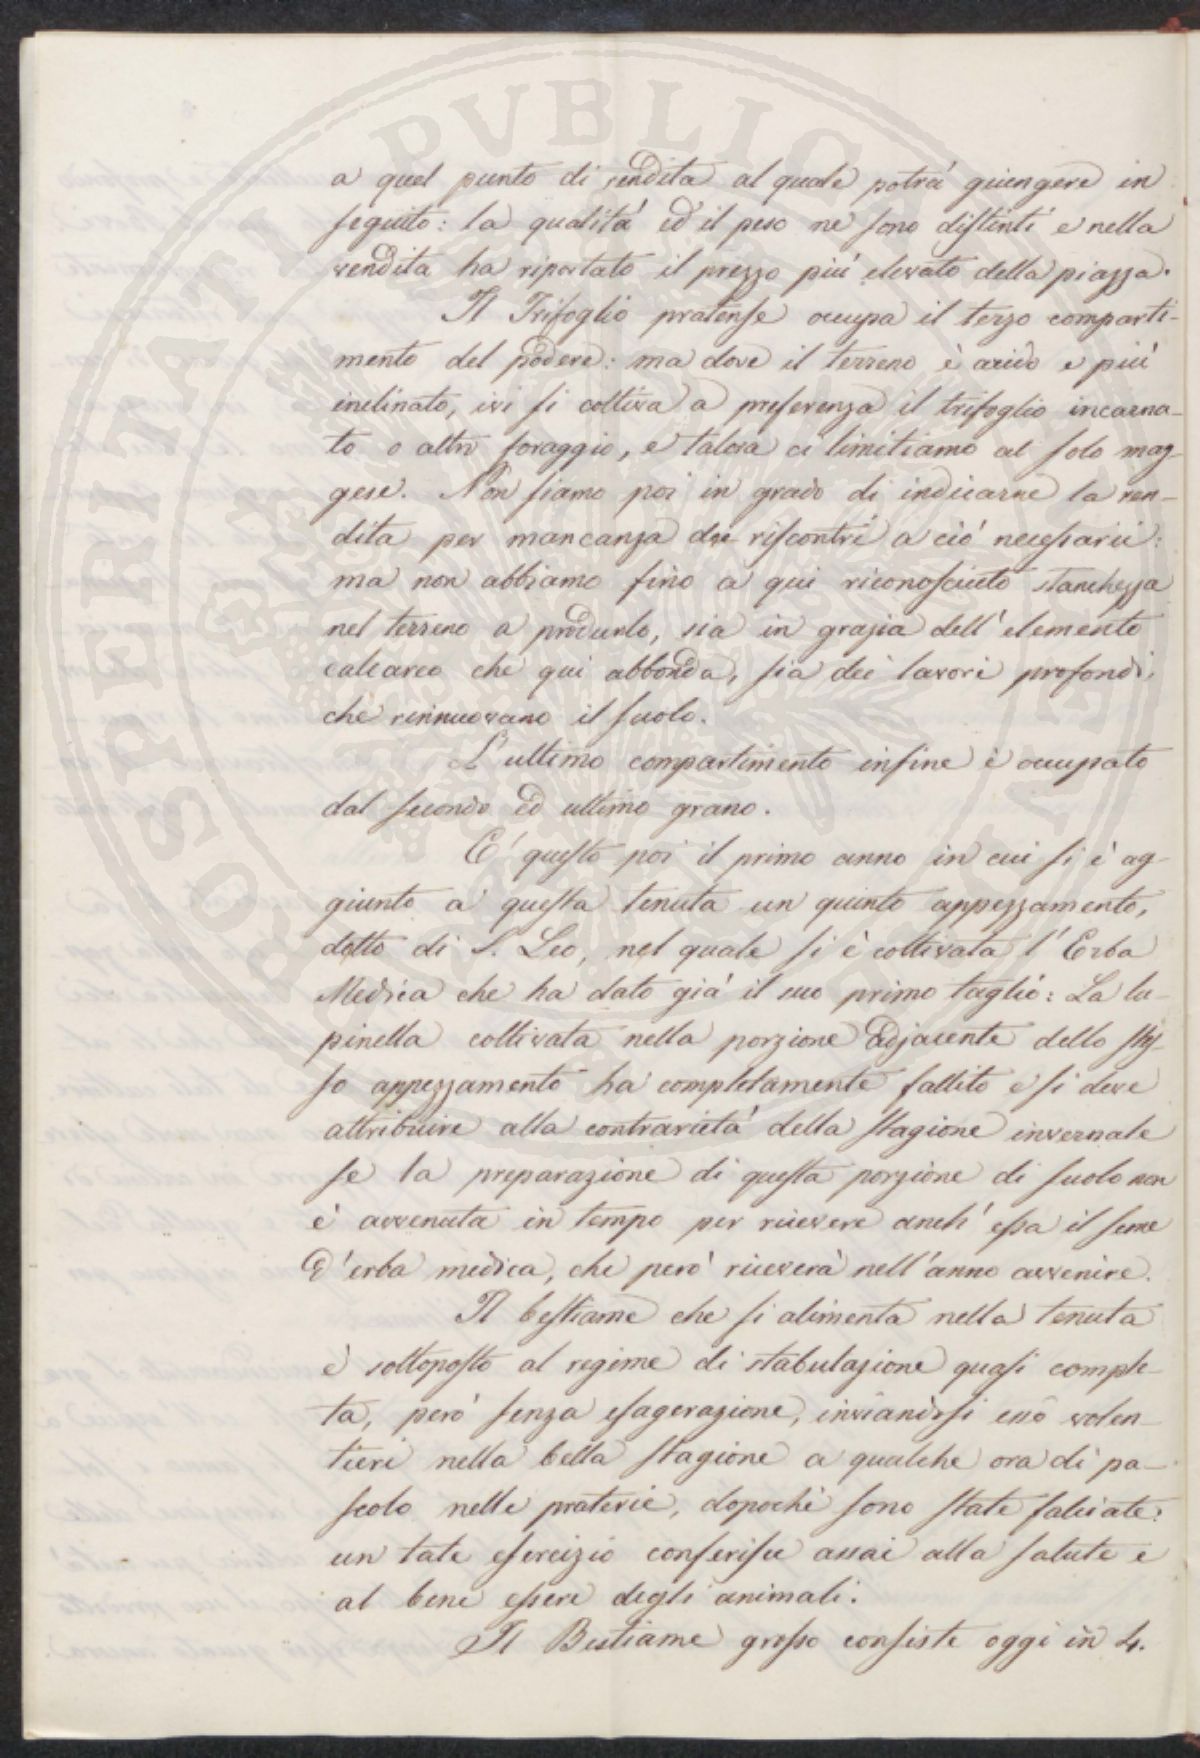 PROSPERITATI PVBLICAE
a quel punto di rendita al quale potrà giungere in
seguito: la qualità ed il peso ne sono distinti e nella
vendita ha riportato il prezzo più elevato della piazza.
Il Trifoglio pratense occupa il terzo comparti-
mento del podere: ma dove il terreno è arido e più
inclinato, ivi si coltiva a preferenza il trifoglio incarna-
to o altro foraggio, e talora ci limitiamo al solo mag-
gese. Non siamo poi in grado di indicarne la ren-
dita per mancanza dei riscontri a ciò necessarii:
ma non abbiamo fino a qui riconosciuto stanchezza
nel terreno a produrlo, sia in grazia dell'elemento
calcareo che qui abbonda, sia dei lavori profondi,
che rinnuovano il suolo.
L'ultimo compartimento infine è occupato
dal secondo ed ultimo grano.
E' questo poi il primo anno in cui si è ag-
giunto a questa tenuta un quinto appezzamento,
detto di S. Leo, nel quale si è coltivata l'Erba
Medica che ha dato già il suo primo taglio: La lu-
pinella coltivata nella porzione adjacente dello stes-
so appezzamento ha completamente fallito e si deve
attribuire alla contrarietà della stagione invernale
se la preparazione di questa porzione di suolo non
è avvenuta in tempo per ricevere anch'essa il seme
d'erba medica, che però riceverà nell'anno avvenire.
Il bestiame che si alimenta nella tenuta
è sottoposto al regime di stabulazione quasi comple-
ta, però senza esagerazione, inviandosi esso volen-
tieri nella bella stagione a qualche ora di pa-
scolo nelle praterie, dopochè sono state falciate:
un tale esercizio conferisce assai alla salute e
al bene essere degli animali.
Il Bestiame grosso consiste oggi in 4.